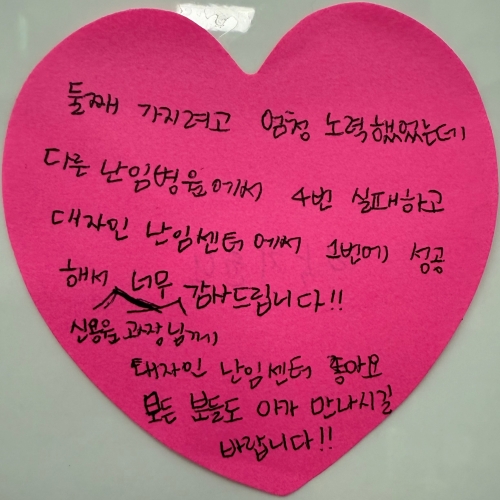 둘째 가지려고 엄청 노력했었는데
다른 난임병원에서 4번 실패하고
대자인 난임센터에서 1번에 성공
해서 너무 감사드립니다!!
신용원 과장님께
대자인 난임센터 좋아요
모든 분들도 아가 만나시길
바랍니다!!